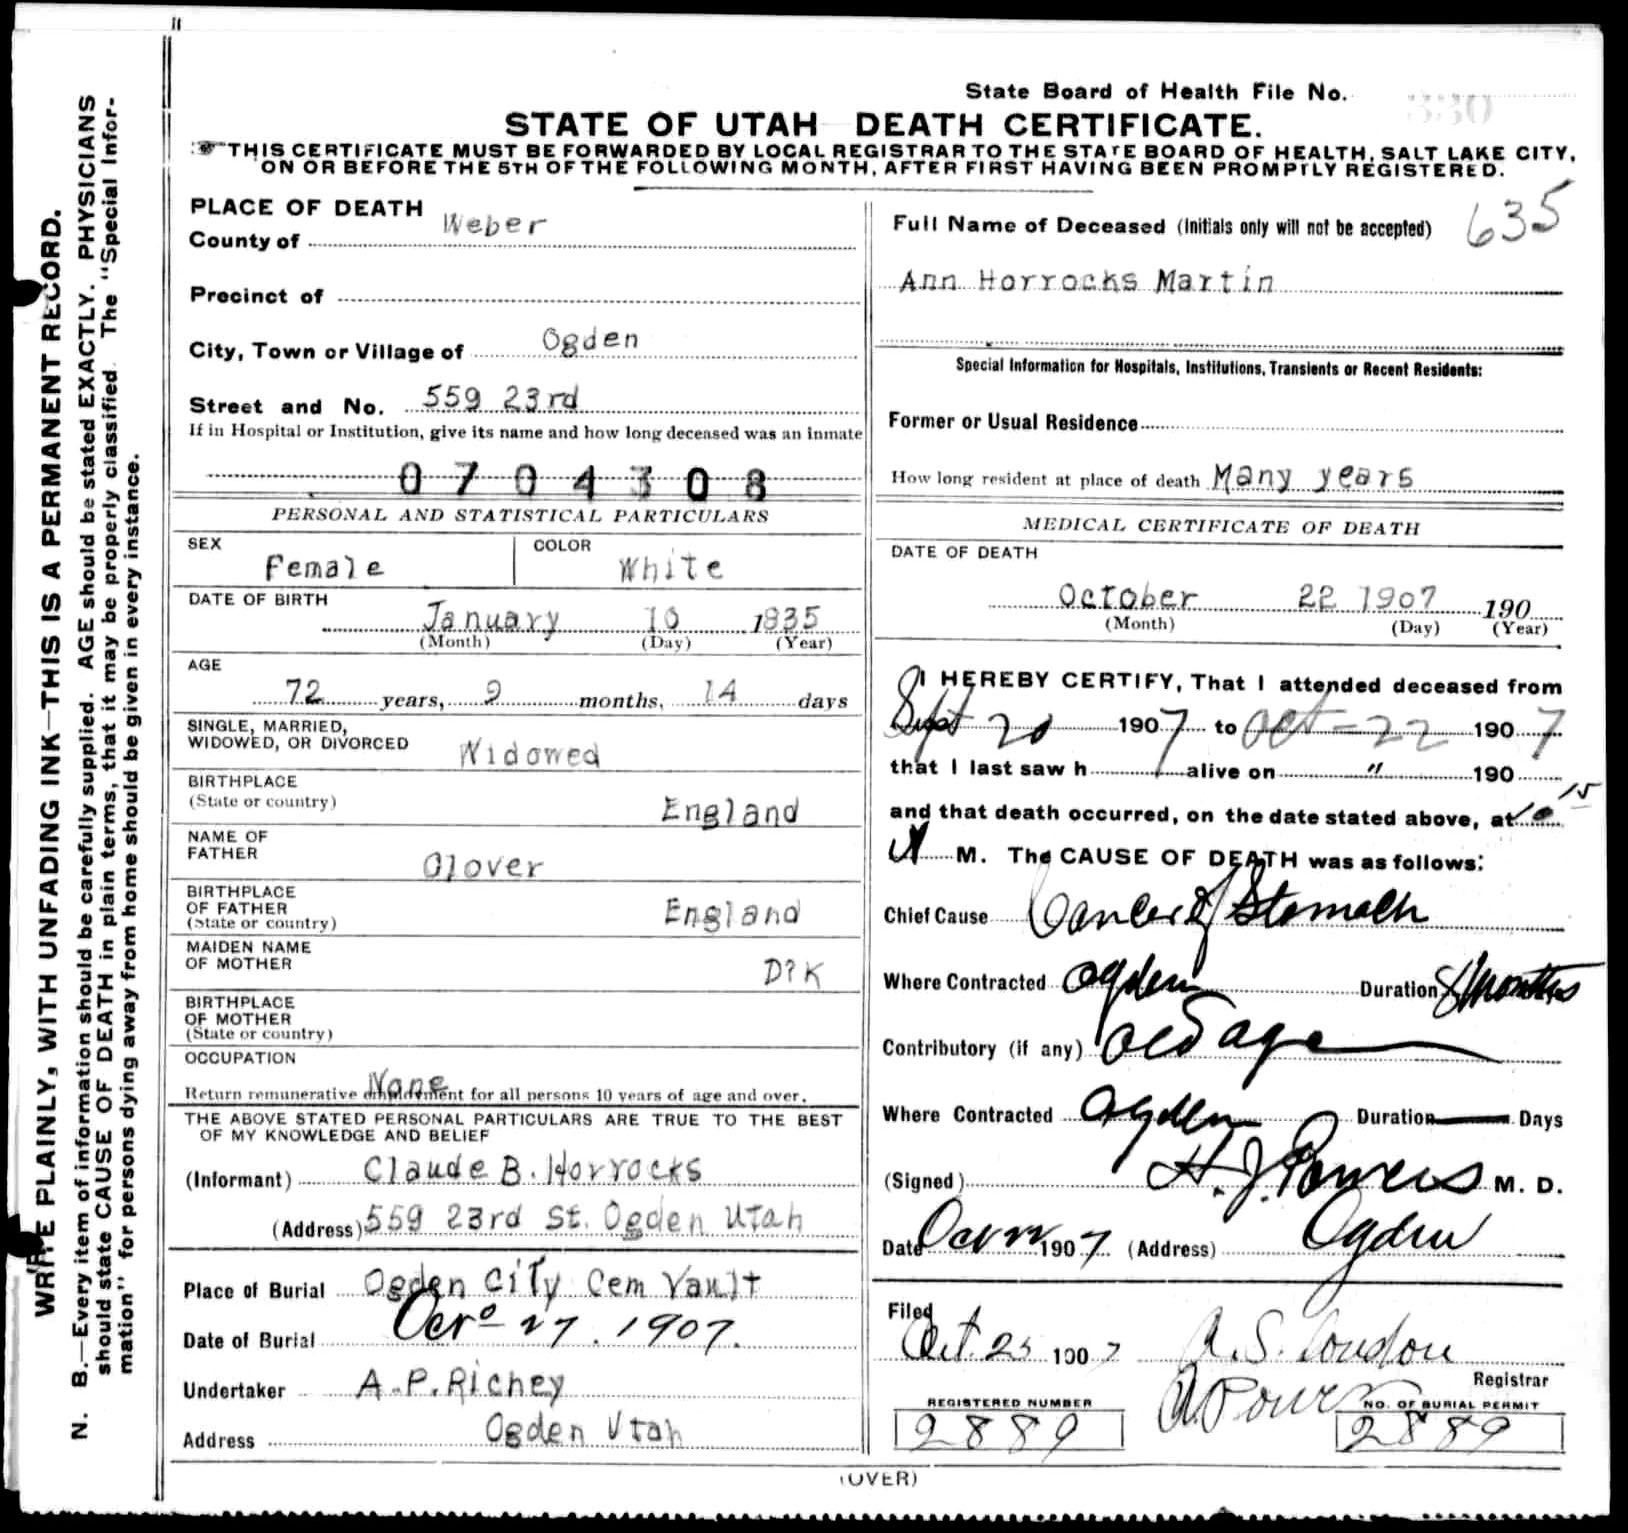 State Board of Health File No. 330
STATE OF UTAH DEATH CERTIFICATE.
THIS CERTIFICATE MUST BE FORWARDED BY LOCAL REGISTRAR TO THE STATE BOARD OF HEALTH, SALT LAKE CITY,
ON OR BEFORE THE 5TH OF THE FOLLOWING MONTH, AFTER FIRST HAVING BEEN PROMPTLY REGISTERED.
WRITE PLAINLY, WITH UNFADING INK—THIS IS A PERMANENT RECORD.
N. B.—Every item of information should be carefully supplied. AGE should be stated EXACTLY. PHYSICIANS
should state CAUSE OF DEATH in plain terms, that it may be properly classified. The "Special Infor-
mation" for persons dying away from home should be given in every instance.
PLACE OF DEATH
County of Weber
Precinct of
City, Town or Village of Ogden
Street and No. 559 23rd
If in Hospital or Institution, give its name and how long deceased was an inmate
0704308
PERSONAL AND STATISTICAL PARTICULARS
SEX Female COLOR White
DATE OF BIRTH
January 10 1835
(Month) (Day) (Year)
AGE
72 years, 9 months, 14 days
SINGLE, MARRIED,
WIDOWED, OR DIVORCED Widowed
BIRTHPLACE
(State or country) England
NAME OF
FATHER Glover
BIRTHPLACE
OF FATHER
(State or country) England
MAIDEN NAME
OF MOTHER D?K
BIRTHPLACE
OF MOTHER
(State or country)
OCCUPATION
None
Return remunerative employment for all persons 10 years of age and over.
THE ABOVE STATED PERSONAL PARTICULARS ARE TRUE TO THE BEST
OF MY KNOWLEDGE AND BELIEF
(Informant) Claude B. Horrocks
(Address) 559 23rd St. Ogden Utah
Place of Burial Ogden City Cem Vault
Date of Burial Oct 27. 1907.
Undertaker A.P. Richey
Address Ogden Utah
Full Name of Deceased (Initials only will not be accepted) 635
Ann Horrocks Martin
Special Information for Hospitals, Institutions, Transients or Recent Residents:
Former or Usual Residence
How long resident at place of death Many years
MEDICAL CERTIFICATE OF DEATH
DATE OF DEATH
October 22 1907 190
(Month) (Day) (Year)
I HEREBY CERTIFY, That I attended deceased from
Sept 20 1907 to Oct-22 1907
that I last saw h alive on " 190
and that death occurred, on the date stated above, at 10 15
M. The CAUSE OF DEATH was as follows:
Chief Cause Cancer of Stomach
Where Contracted Ogden Duration 8 Months
Contributory (if any) Old age
Where Contracted Ogden Duration Days
(Signed) H. J. Powers M. D.
Date Oct 1907. (Address) Ogden
Filed
Oct. 25 1907 A. S. Condon
Registrar
REGISTERED NUMBER
2889
NO. OF BURIAL PERMIT
2889
(OVER)